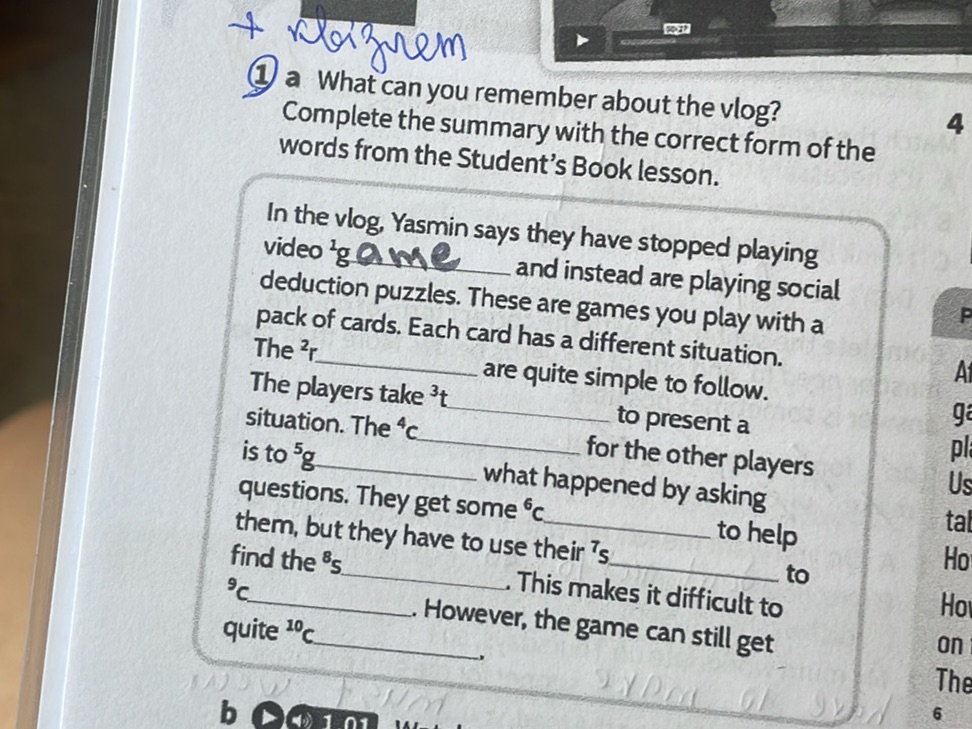 00:27
+
1 a What can you remember about the vlog?
Complete the summary with the correct form of the
words from the Student's Book lesson.
In the vlog, Yasmin says they have stopped playing
video ¹game and instead are playing social
deduction puzzles. These are games you play with a
pack of cards. Each card has a different situation.
The ²r____________ are quite simple to follow.
The players take ³t____________ to present a
situation. The ⁴c____________ for the other players
is to ⁵g____________ what happened by asking
questions. They get some ⁶c____________ to help
them, but they have to use their ⁷s____________ to
find the ⁸s____________. This makes it difficult to
⁹c____________. However, the game can still get
quite ¹⁰c____________.
b 1.01
4
6